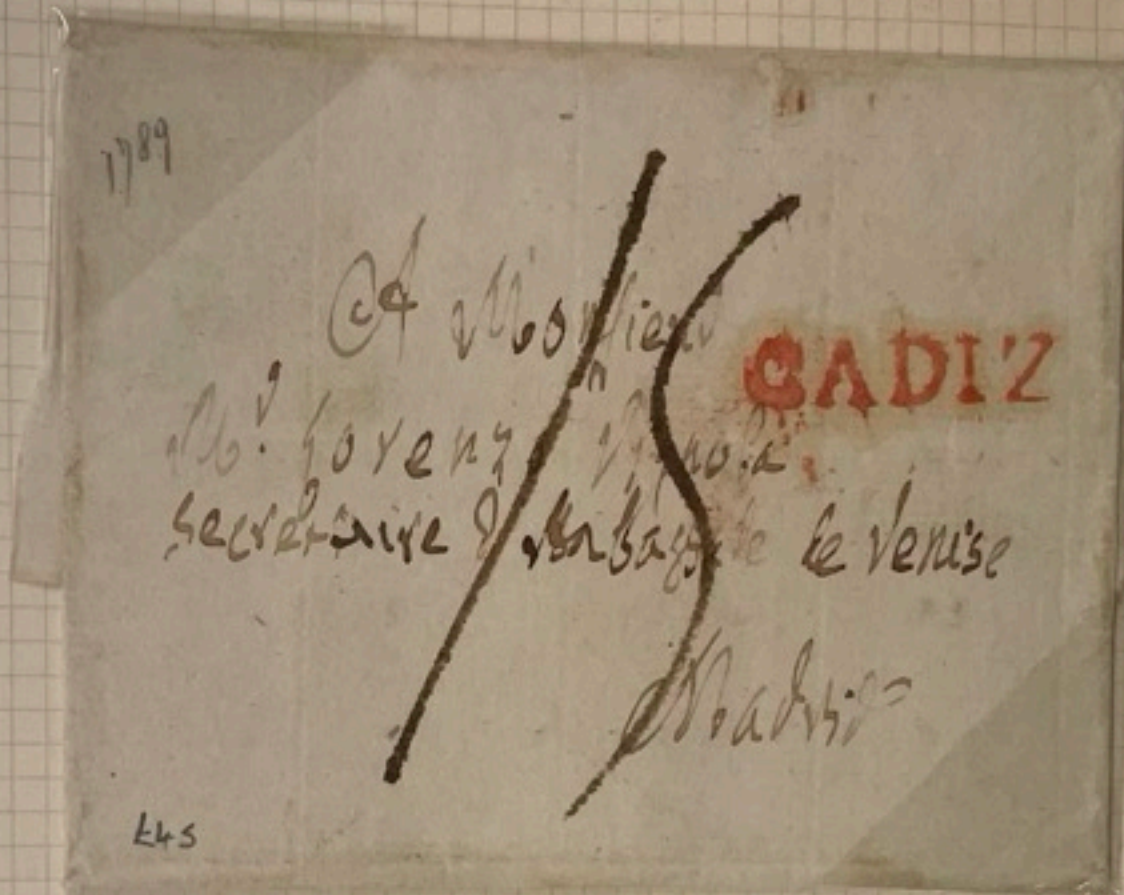 1789
A Monsieur
CADIZ
Mr. Lorenzo Vignola
secretaire d'Ambassade de Venise
Madrid
15
£45